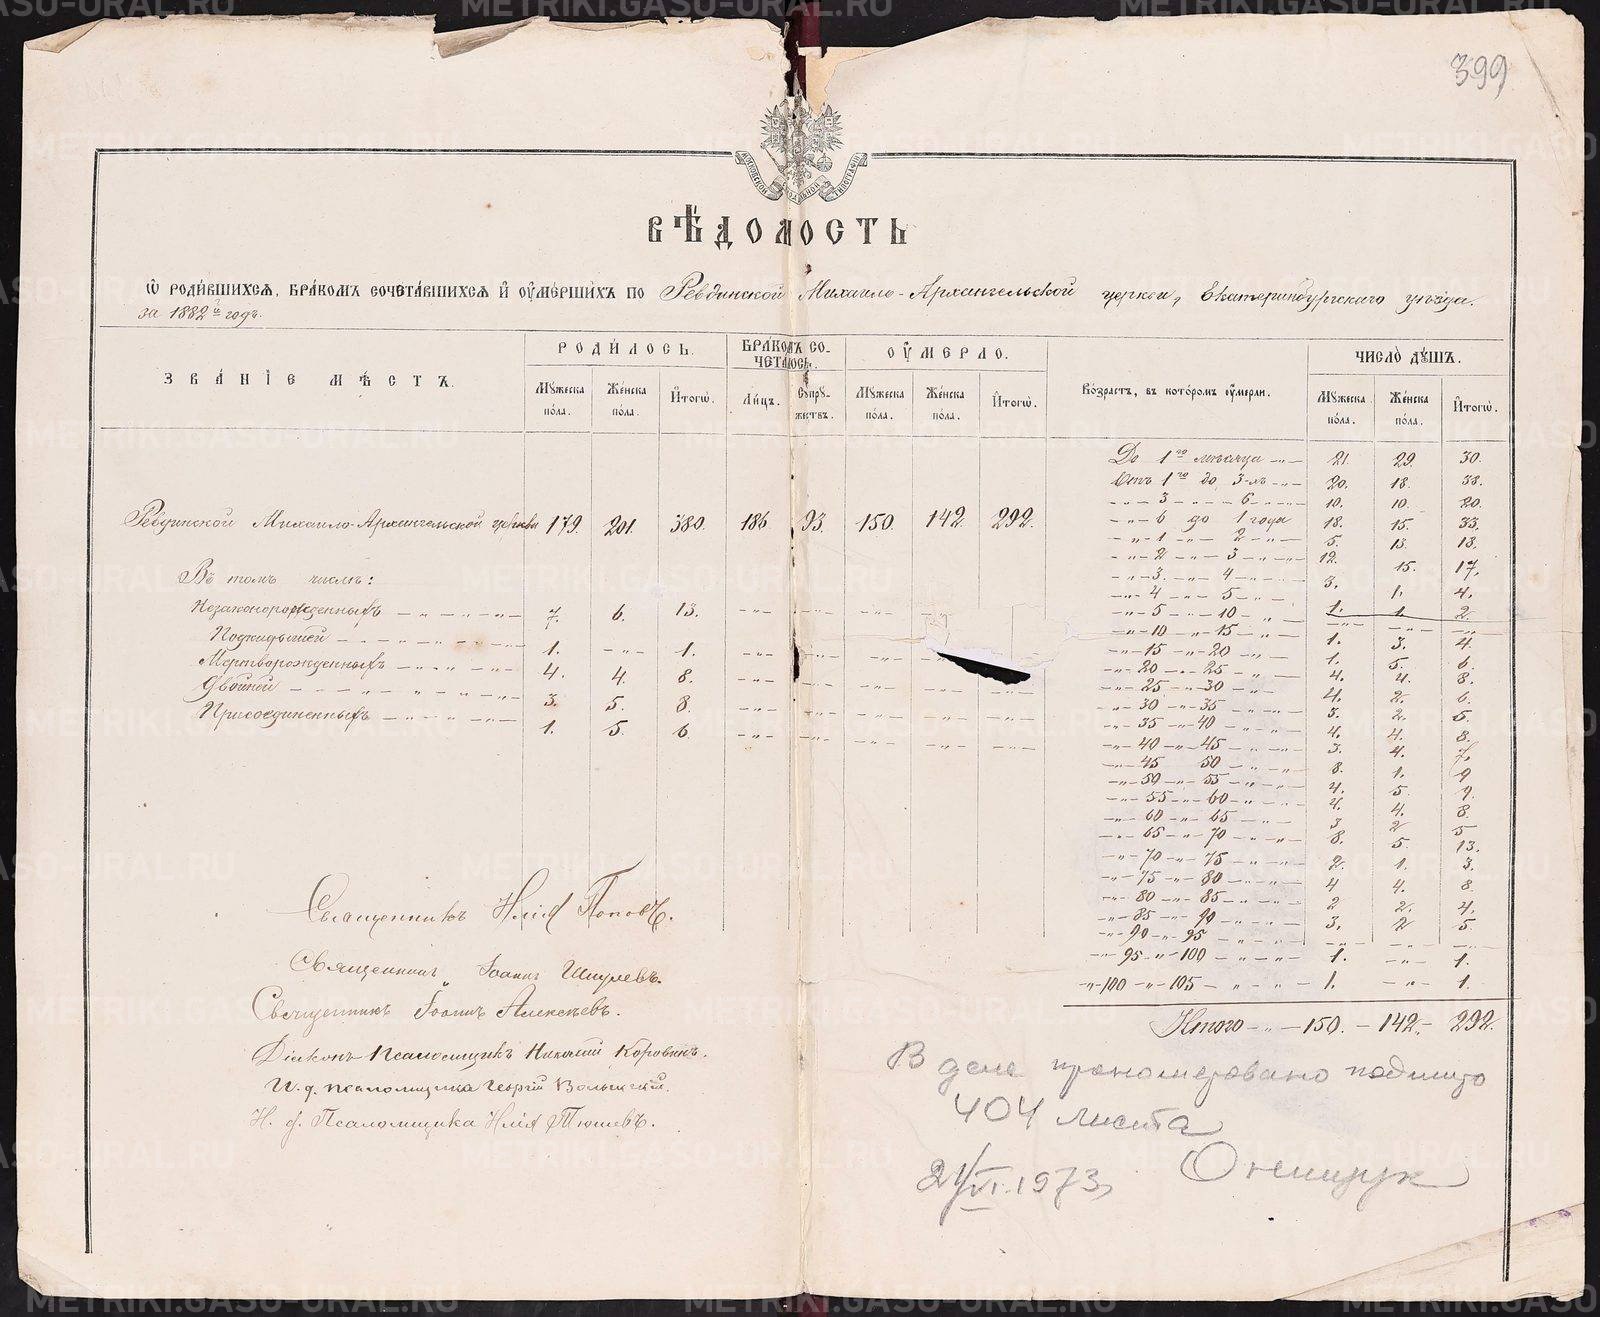 399
ВѢДОМОСТЬ
Ѡ РОДИВШИХСЯ, БРАКОМЪ СОЧЕТАВШИХСЯ И ОУМЕРШИХЪ ПО Ревдинской Михаило-Архангельской церкви, Екатеринбургскаго уѣзда.
за 1882й годъ.
ЗВАНІЕ МѢСТЪ. РОДИЛОСЬ. БРАКОМЪ СОЧЕТАЛОСЬ. ОУМЕРЛО. Возрастъ, въ которомъ оумерли. ЧИСЛО ДУШЪ.
Мужеска пола. Женска пола. Итогѡ. Лицъ. Супружествъ. Мужеска пола. Женска пола. Итогѡ. Мужеска пола. Женска пола. Итогѡ.
Ревдинской Михаило-Архангельской церкви 179. 201. 380. 186 93. 150. 142. 292.
Въ томъ числѣ:
Незаконорожденныхъ 7. 6. 13.
Подкидышей 1. 1.
Мертворожденныхъ 4. 4. 8.
Двойней 3. 5. 8.
Присоединенныхъ 1. 5. 6.
До 1го мѣсяца 21. 29. 30.
Отъ 1го до 3-хъ 20. 18. 38.
3 6 10. 10. 20.
6 до 1 года 18. 15. 33.
1 2 5. 13. 18.
2 3 12. 15. 17.
3 4 3. 1. 4.
4 5 1. 1. 2.
5 10
10 15 1. 3. 4.
15 20 1. 5. 6.
20 25 4. 4. 8.
25 30 4. 2. 6.
30 35 3. 2. 5.
35 40 4. 4. 8.
40 45 3. 4. 7.
45 50 8. 1. 9
50 55 4. 5. 9.
55 60 4. 4. 8.
60 65 3 2 5
65 70 8. 5. 13.
70 75 2. 1. 3.
75 80 4 4. 8.
80 85 2 2. 4.
85 90 3. 2 5.
90 95
95 100 1. 1.
100 105 1. 1.
Итого 150. 142. 292.
Священникъ Илія Поповъ.
Священникъ Іоаннъ
Священникъ Іоаннъ Алексѣевъ.
Діаконъ Псаломщикъ Николай Коровинъ.
И. д. псаломщика Георгій
И. д. Псаломщика Илія Тюшевъ.
В деле пронумеровано подшито
404 листа
21/VI.1973 Онищук